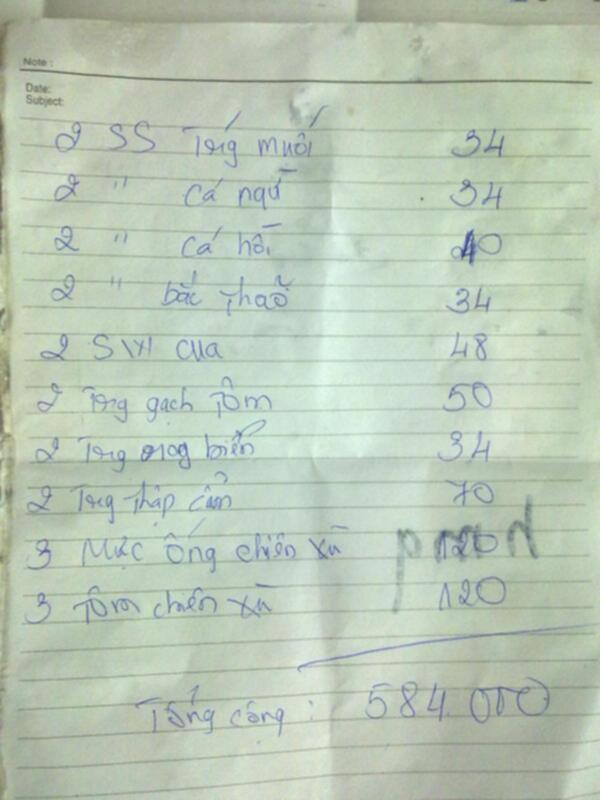 Note :
Date:
Subject:
2 SS Trứg muối 34
2 " cá ngừ 34
2 " cá hồi 40
2 " bắc thảo 34
2 SW cua 48
2 Trg gạch Tôm 50
2 Trg rong biển 34
2 Trg thập cẩm 70
3 Mực ống chiên xù 120
3 Tôm chiên xù 120
Tổng cộng : 584.000